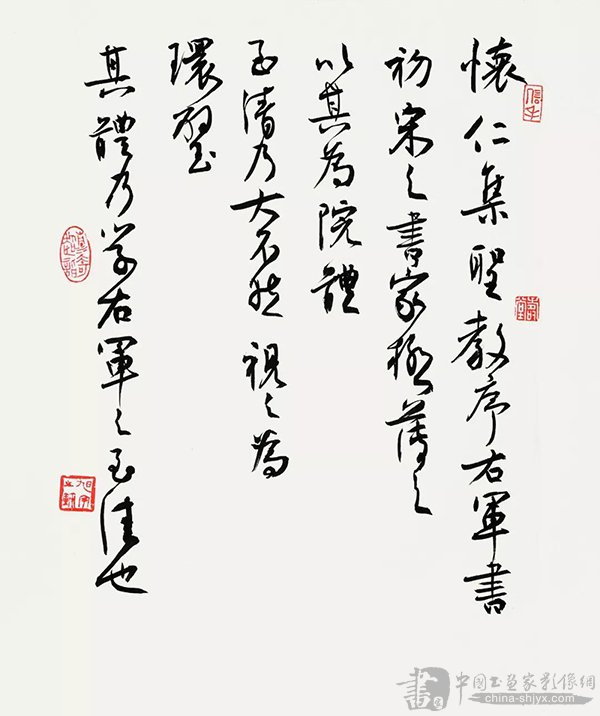 懷仁集聖教序右軍書
初宋之書家極薄之
以其為院體
至清乃大不然視之為
環璧
其體乃學右軍之至佳也
書 中國书画家影像網
china-shjyx.com